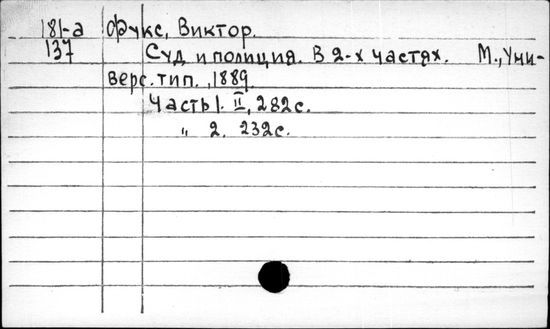 181-а Фукс, Виктор.
137 Суд и полиция. В 2-х частях. М., Уни-
верс. тип., 1889.
Часть 1. II, 282с.
" 2. 232с.